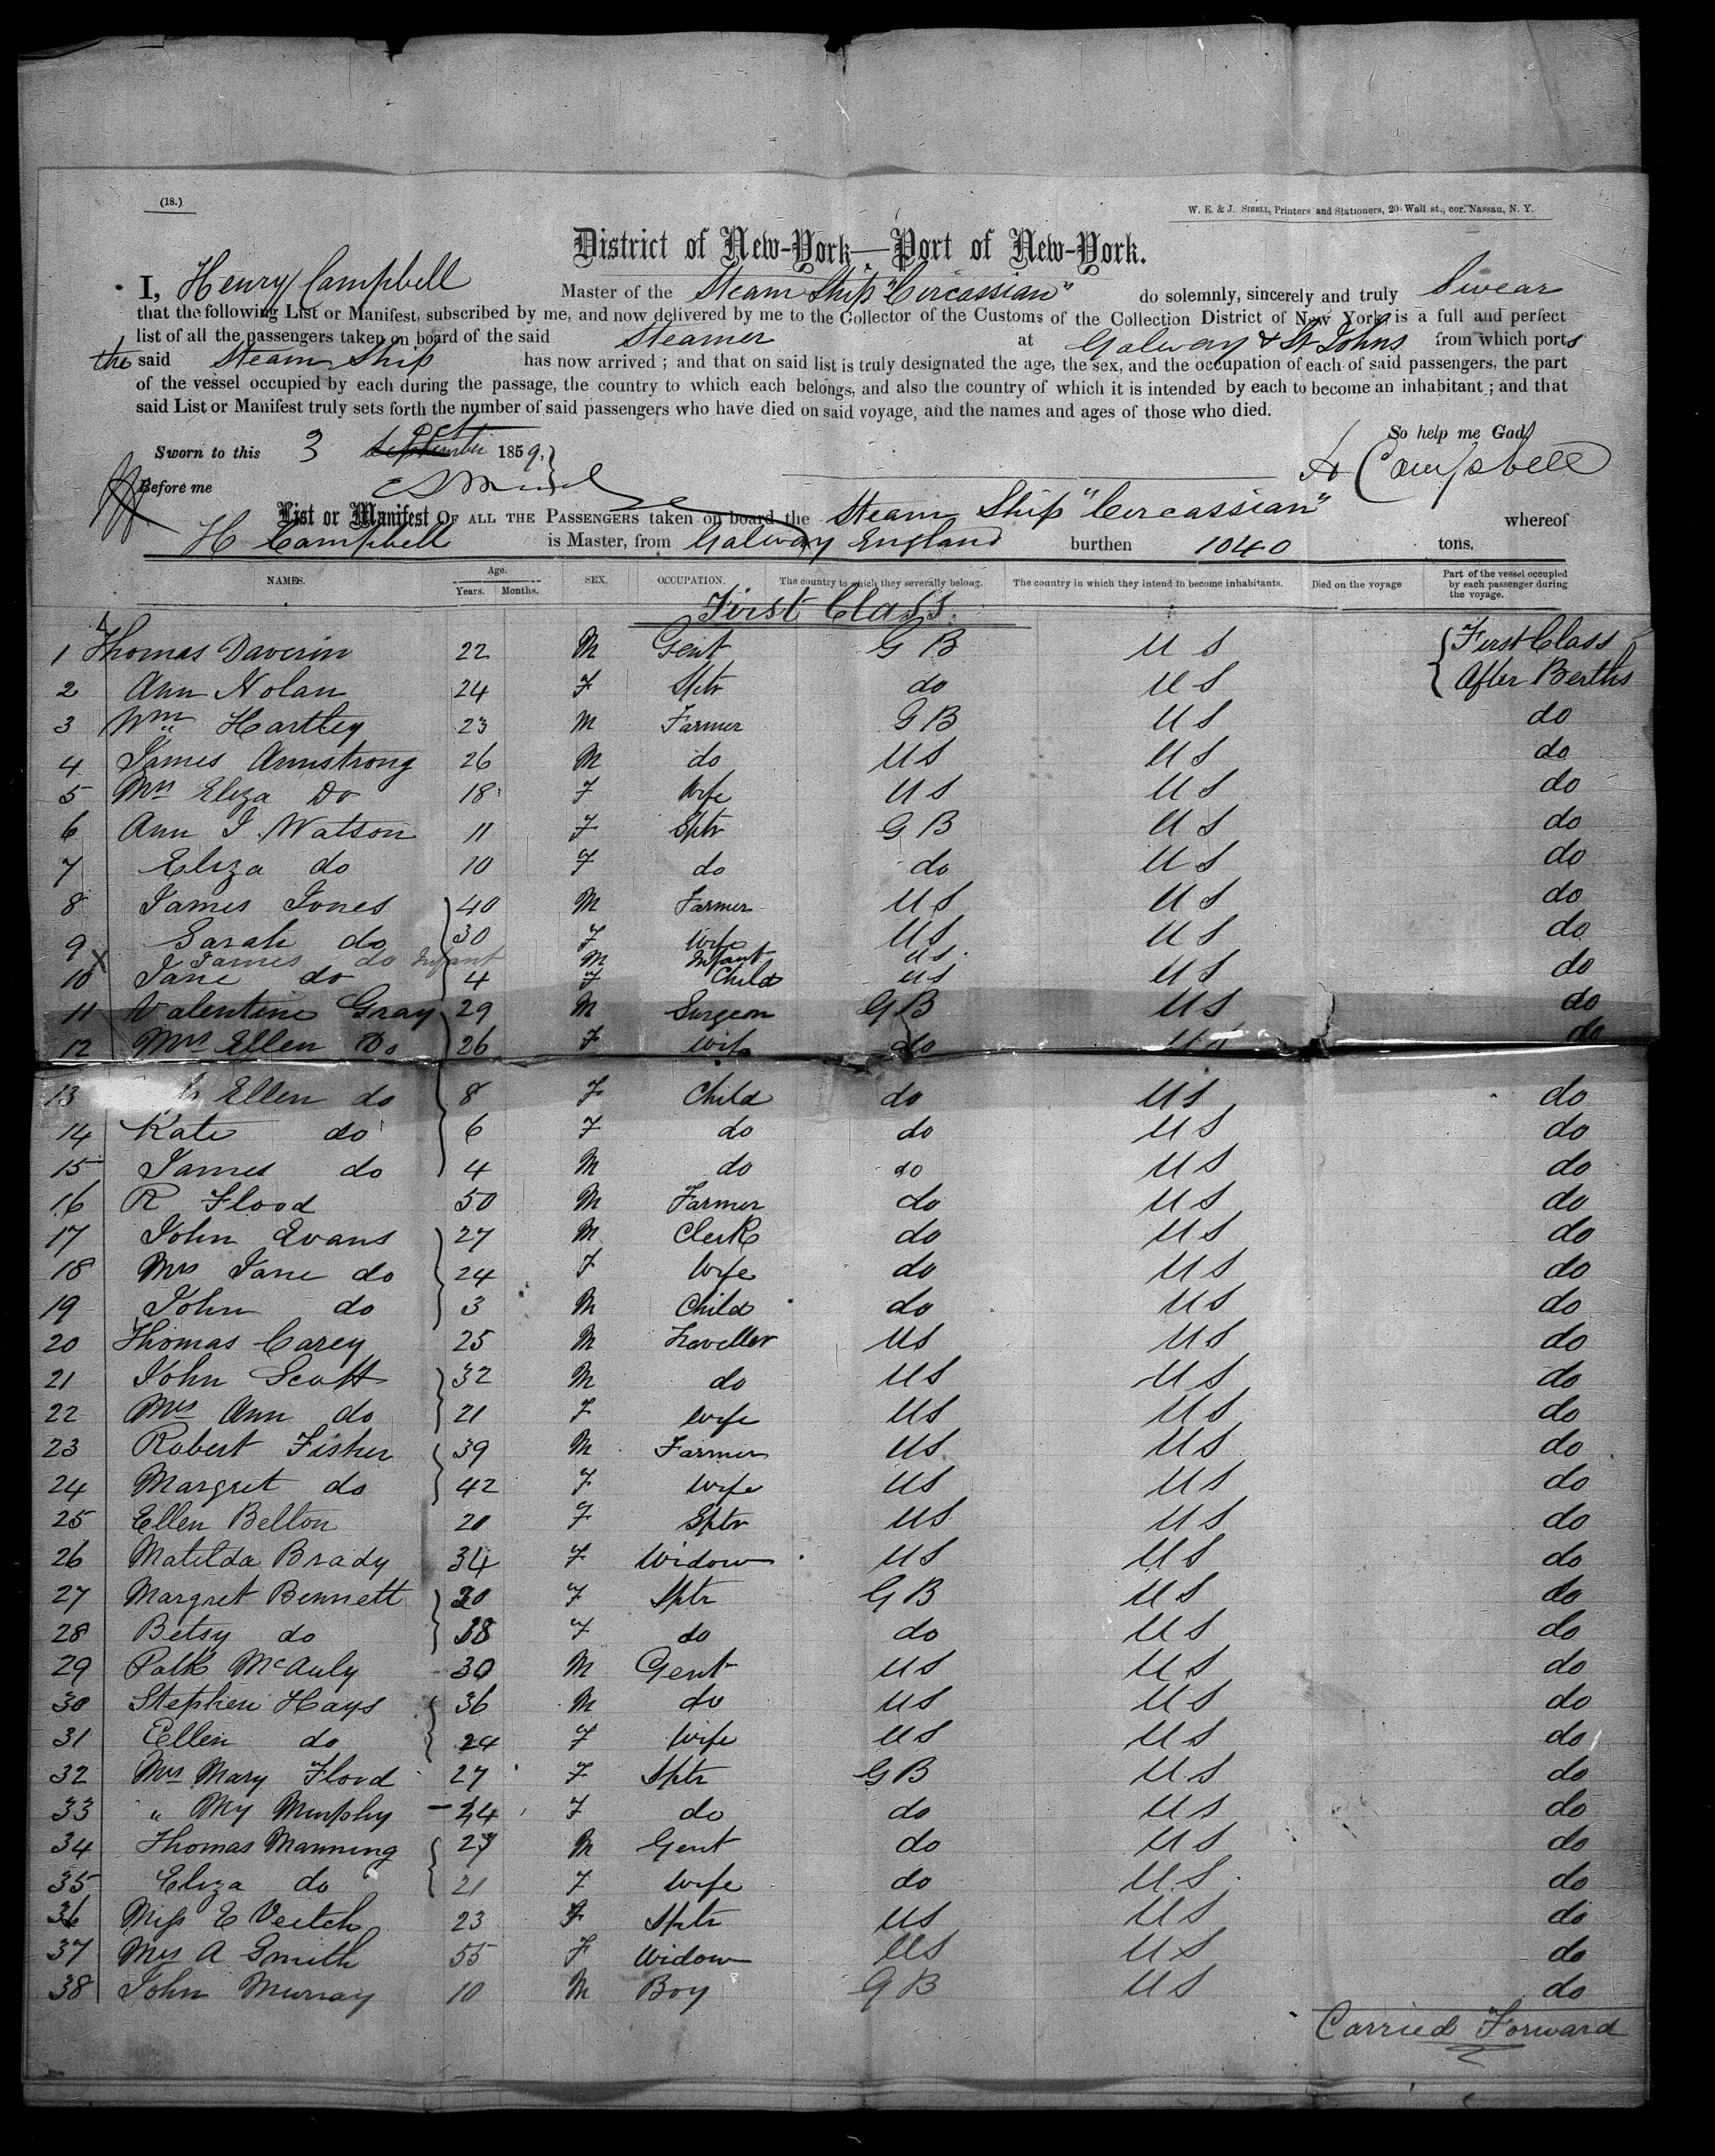 (18.)
W. E. & J. SIBELL, Printers and Stationers, 20 Wall st., cor. Nassau, N. Y.
District of New-York—Port of New-York.
I, Henry Campbell Master of the Steam Ship "Circassian" do solemnly, sincerely and truly Swear
that the following List or Manifest, subscribed by me, and now delivered by me to the Collector of the Customs of the Collection District of New York, is a full and perfect
list of all the passengers taken on board of the said Steamer at Galway & St Johns from which ports
the said Steam Ship has now arrived; and that on said list is truly designated the age, the sex, and the occupation of each of said passengers, the part
of the vessel occupied by each during the passage, the country to which each belongs, and also the country of which it is intended by each to become an inhabitant; and that
said List or Manifest truly sets forth the number of said passengers who have died on said voyage, and the names and ages of those who died.
So help me God
Sworn to this 3 Oct September 1859,
H Campbell
Before me
List or Manifest OF ALL THE PASSENGERS taken on board the Steam Ship "Circassian" whereof
H Campbell is Master, from Galway England burthen 1040 tons.
NAMES. Age. Years. Months. SEX. OCCUPATION. The country to which they severally belong. The country in which they intend to become inhabitants. Died on the voyage Part of the vessel occupied by each passenger during the voyage.
First Class
1 Thomas Daverin 22 M Gent G B U S First Class
2 Ann Nolan 24 F Sptr do U S After Berths
3 Wm Hartley 23 M Farmer G B U S do
4 James Armstrong 26 M do U S U S do
5 Mrs Eliza Do 18 F Wife U S U S do
6 Ann J Watson 11 F Sptr G B U S do
7 Eliza do 10 F do do U S do
8 James Jones 40 M Farmer U S U S do
9 Sarah do 30 F Wife U S U S do
X James do Infant M Infant U S
10 Jane do 4 F Child U S U S do
11 Valentine Gray 29 M Surgeon G B U S do
12 Mrs Ellen Do 26 F Wife do U S do
13 Ellen do 8 F Child do U S do
14 Kate do 6 F do do U S do
15 James do 4 M do do U S do
16 R Flood 50 M Farmer do U S do
17 John Evans 27 M Clerk do U S do
18 Mrs Jane do 24 F Wife do U S do
19 John do 3 M Child do U S do
20 Thomas Carey 25 M Traveller U S U S do
21 John Scott 32 M do U S U S do
22 Mrs Ann do 21 F Wife U S U S do
23 Robert Fisher 39 M Farmer U S U S do
24 Margret do 42 F Wife U S U S do
25 Ellen Belton 20 F Sptr U S U S do
26 Matilda Brady 34 F Widow U S U S do
27 Margret Bennett 20 F Sptr G B U S do
28 Betsy do 18 F do do U S do
29 Patk McAuly 30 M Gent U S U S do
30 Stephen Hays 36 M do U S U S do
31 Ellen do 24 F Wife U S U S do
32 Mrs Mary Flood 27 F Sptr G B U S do
33 " My Murphy 44 F do do U S do
34 Thomas Manning 27 M Gent do U S do
35 Eliza do 21 F Wife do U S do
36 Miss E Veitch 23 F Sptr U S U S do
37 Mrs A Smith 55 F Widow U S U S do
38 John Murray 10 M Boy G B U S do
Carried Forward